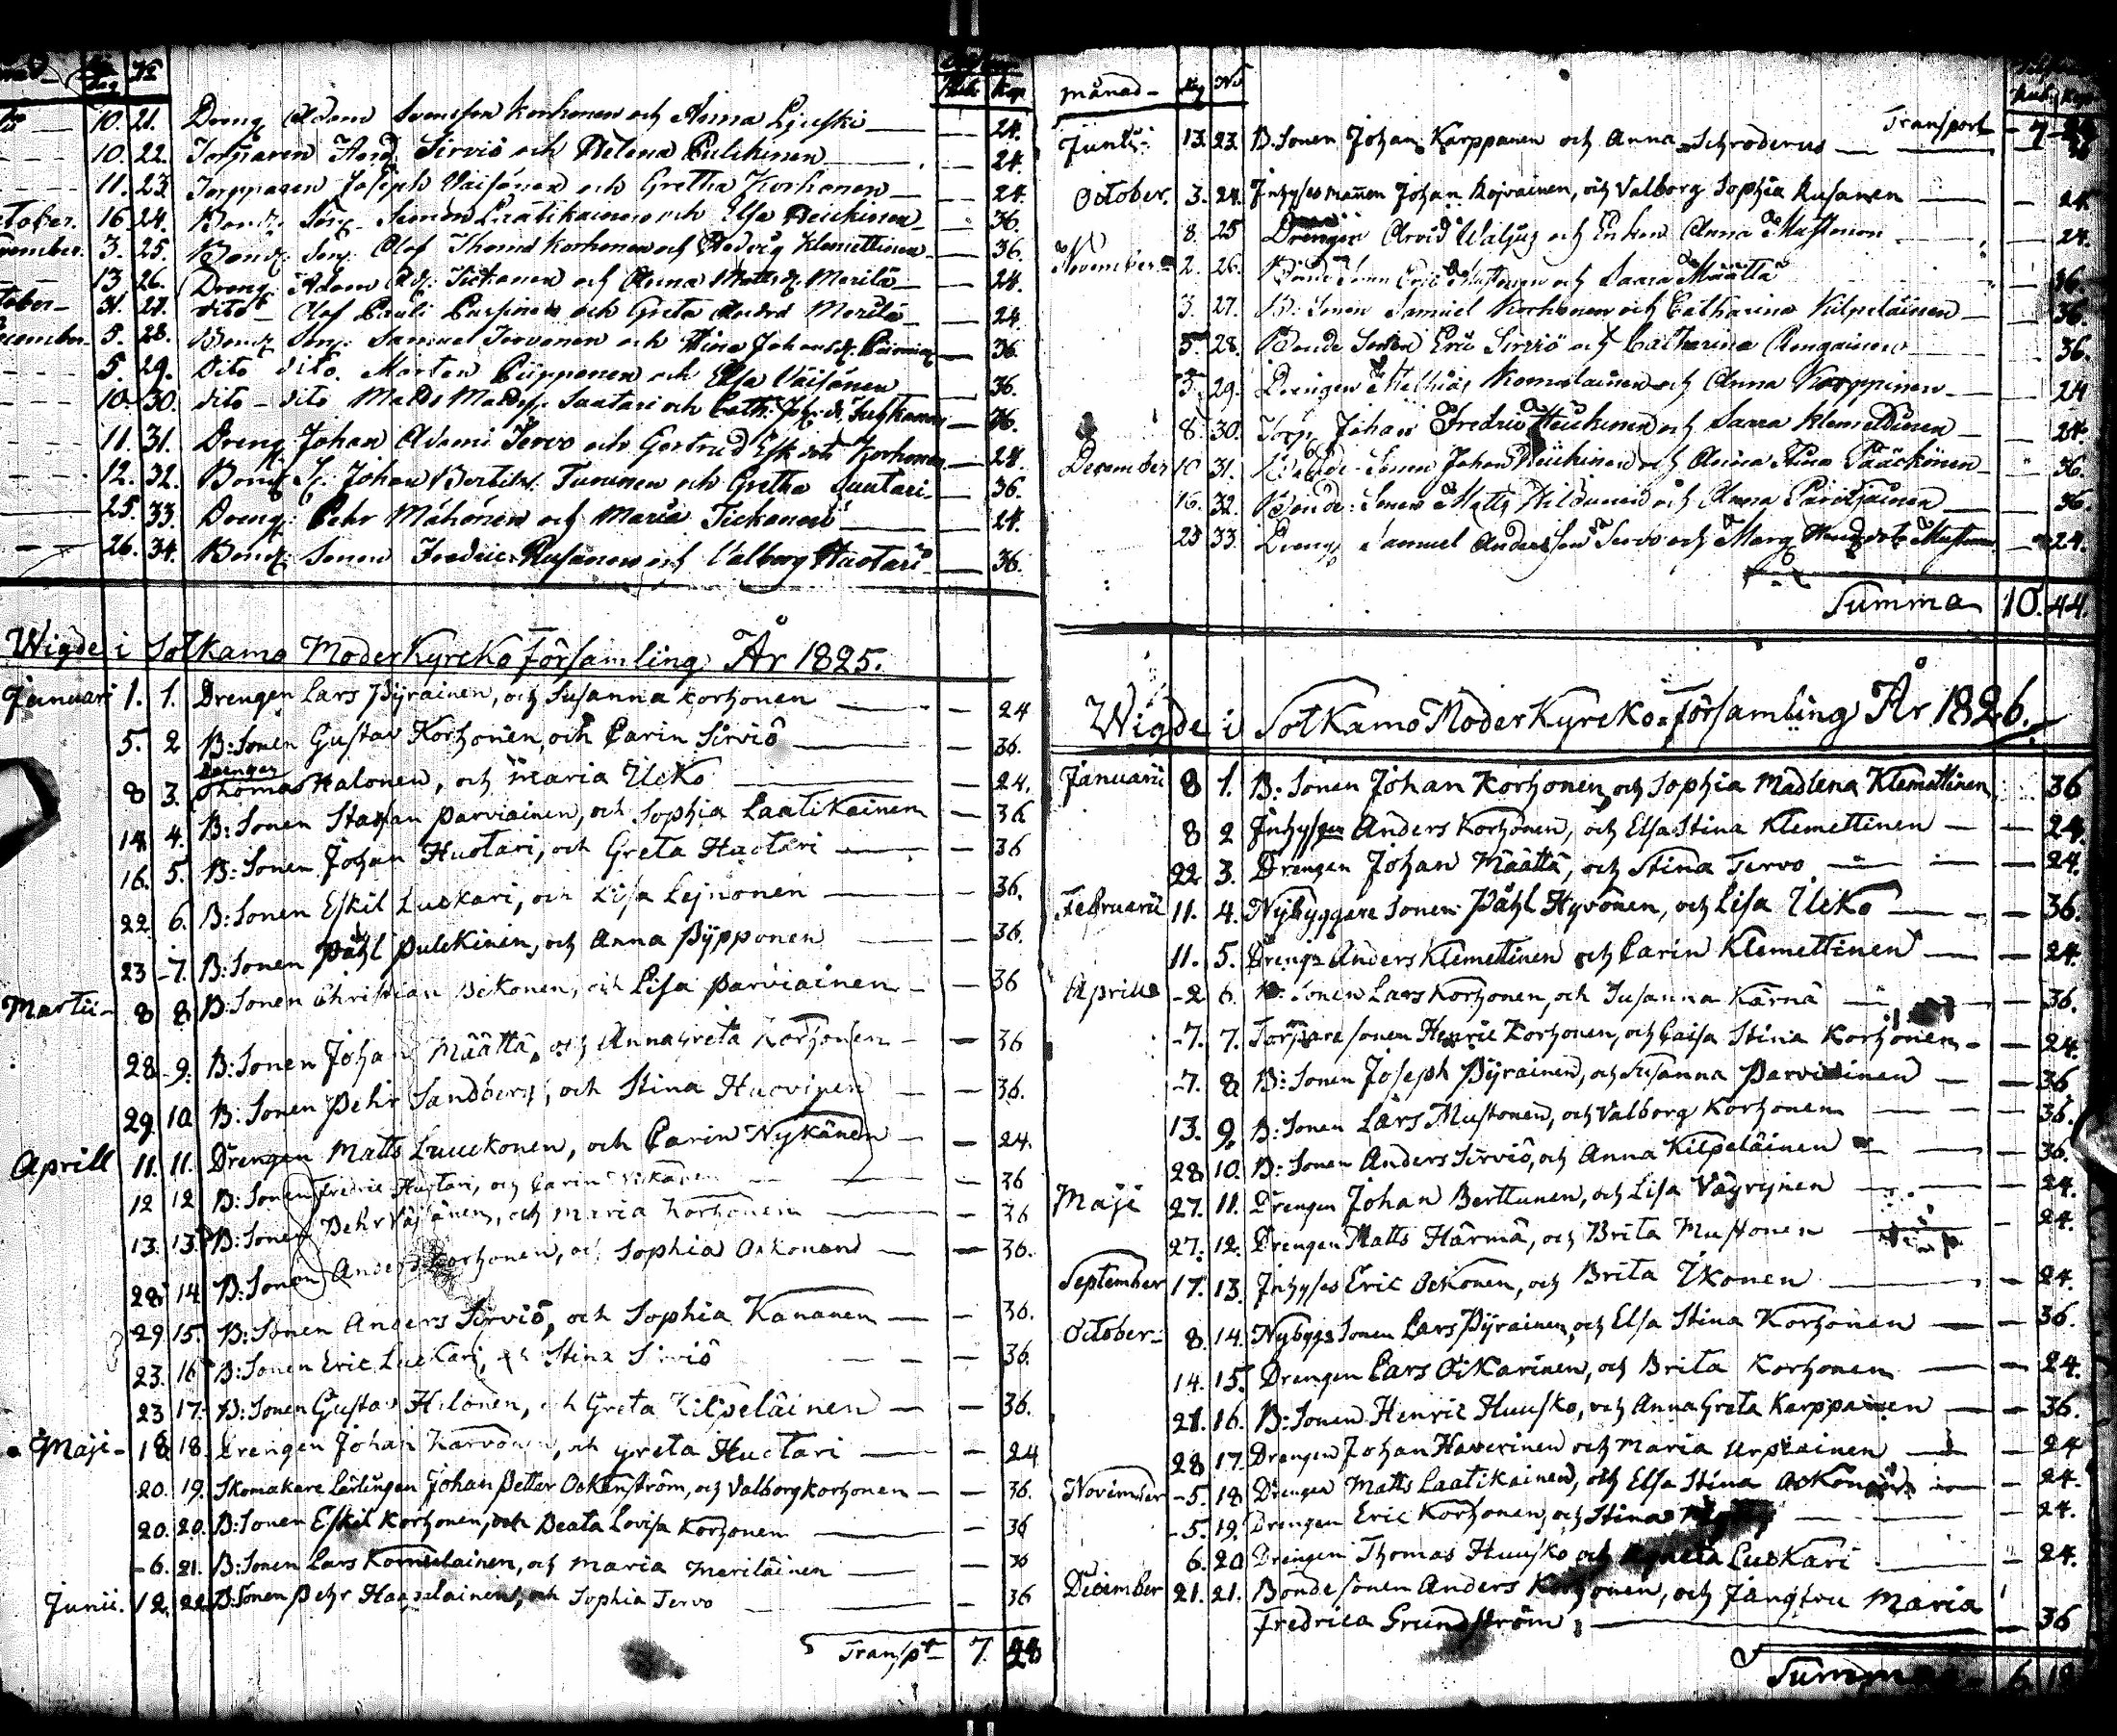 10. 21. Dreng Adam Svensson Korhonen och Anna Ljuski 24.
10. 22. Torparen Sirviö och Helena Pulckinen 24.
11. 23. Torpparen Joseph Väisänen och Gretha Korhonen 24.
16 24. Bond. Son. Simon Laatikainen och Elsa Heickinen 36.
3. 25. Bond. Son. Olof Thomas Korhonen och Hedvig Klemettinen 36.
13 26. Dreng Adam Tickanen och Anna Matsd. Merilä 24.
31. 27. dito Olof Pauli och Greta Merilä 24.
5. 28. Bond. Son. Samuel Tervonen och Stina Johansd. 36.
5. 29. Dito dito. Morten Piipponen och Elsa Väisänen 36.
10. 30. dito dito Matts Mattss. Saatari och Cath. 36.
11. 31. Dreng Johan Adami Tervo och Gertrud Korhonen 24.
12. 32. Bond. S. Johan Bertils. Turunen och Gretha Huotari 36.
25. 33. Dreng Pehr Mähönen och Maria Tickanen 24.
26. 34. Bond. Sonen Fredric Rusanen och Valborg Huotari 36.
Wigde i Sotkamo Moder Kyrcko församling År 1825.
Januari 1. 1. Drengen Lars Pyrainen, och Susanna Korhonen 24
5. 2 B: Sonen Gustav Korhonen, och Carin Sirviö 36.
8 3. Drengen Thomas Halonen, och Maria Ucko 24.
14 4. B: Sonen Staffan Parviainen, och Sophia Laatikainen 36
16. 5. B: Sonen Johan Huotari, och Greta Huotari 36
22 6. B: Sonen Eskil Luckari, och Lisa Lejnonen 36.
23 7. B: Sonen Påhl Pulckinen, och Anna Pypponen 36.
Martii 8 8 B: Sonen Christian Ockonen, och Lisa Parviainen 36
28 9. B: Sonen Johan Määttä, och Anna Greta Korhonen 36
29. 10. B: Sonen Pehr Sandberg, och Stina Hurvinen 36.
Aprill 11. 11. Drengen Matts Luuckonen, och Carin Nykänen 24.
12 12 B: Sonen Fredric Huotari, och Carin 36
13. 13. B: Sonen Pehr Väisänen, och Maria Korhonen 36
28 14 B: Sonen Anders Korhonen, och Sophia Ockonen 36.
29 15. B: Sonen Anders Sirviö, och Sophia Kananen 36.
23. 16 B: Sonen Eric Luckari, och Stina Sirviö 36.
23 17. B: Sonen Gustav Halonen, och Greta Kilpeläinen 36.
Maji 18 18. Drengen Johan Karvonen, och Greta Huotari 24
20. 19. Skomakare Lärlingen Johan Petter Ockenström, och Valborg Korhonen 36.
20. 20. B: Sonen Eskil Korhonen, och Beata Lovisa Korhonen 36
6. 21. B: Sonen Lars Komulainen, och Maria Meriläinen 36
Junii. 12. 22. B: Sonen Pehr Haapalainen, och Sophia Tervo 36
Transpt 7. 28
Månad Dag No
Transport 7
Junii 13. 23. B. Sonen Johan Karppanen och Anna Schroderus
October. 3. 24. Inhyses mannen Johan Kojvainen, och Valborg Sophia Rusanen 24.
8. 25 Drengen Arvid Waljus och Enkan Anna Mustonen 24.
November 2. 26. Bonde Sonen Eric Mustonen och Saara Määttä 36.
3. 27. B: Sonen Samuel Korhonen och Catharina Kilpeläinen 36.
5. 28. Bonde Sonen Eric Sirviö och Catharina 36.
5. 29. Drengen Mathias Komulainen och Anna Karppinen 24
8. 30. Torp. Johan Fredric Heickinen och Saara Klemettinen 24.
December 10 31. Bonde Sonen Johan Heickinen och Anna Stina Pääckönen 36.
16. 32. Bonde Sonen Matts och Anna Parviainen 36.
25 33. Dreng Samuel Andersson Tervo och Marg. Mustonen 24.
Summa 10. 44.
Wigde i Sotkamo Moder Kyrcko församling År 1826.
Januarii 8 1. B: Sonen Johan Korhonen, och Sophia Madlena Klemettinen 36
8 2 Inhyses Anders Korhonen, och Elsa Stina Klemettinen 24.
22 3. Drengen Johan Määttä, och Stina Tervo 24.
Februarii 11. 4. Nybyggare Sonen Påhl Hyvönen, och Lisa Ucko 36.
11. 5. Drengen Anders Klemettinen och Carin Klemettinen 24.
Aprill 2 6. B: Sonen Lars Korhonen, och Susanna Kärnä 36.
7. 7. Torpare sonen Henric Korhonen, och Caisa Stina Korhonen 24.
7. 8 B: Sonen Joseph Pyrainen, och Susanna Parviainen 36
13. 9. B: Sonen Lars Mustonen, och Valborg Korhonen 36.
28 10. B: Sonen Anders Sirviö, och Anna Kilpeläinen 36.
Maji 27. 11. Drengen Johan Berttunen, och Lisa Väyrynen 24.
27. 12. Drengen Matts Härmä, och Brita Mustonen 24.
September 17. 13. Inhyses Eric Ockonen, och Brita Ikonen 24.
October 8. 14. Nybygg. Sonen Lars Pyrainen, och Elsa Stina Korhonen 36.
14. 15. Drengen Lars Oikarinen, och Brita Korhonen 24.
21. 16. B: Sonen Henric Huusko, och Anna Greta Karppainen 36.
28 17. Drengen Johan Haverinen och Maria Urpiainen 24
November 5. 18 Drengen Matts Laatikainen, och Elsa Stina Ockonen 24.
5. 19. Drengen Eric Korhonen, och Stina 24.
6. 20 Drengen Thomas Huusko och Luckari 24.
December 21. 21. Bonde sonen Anders Korhonen, och Jungfru Maria
Fredrica Grundström 36
Summa 6. 18